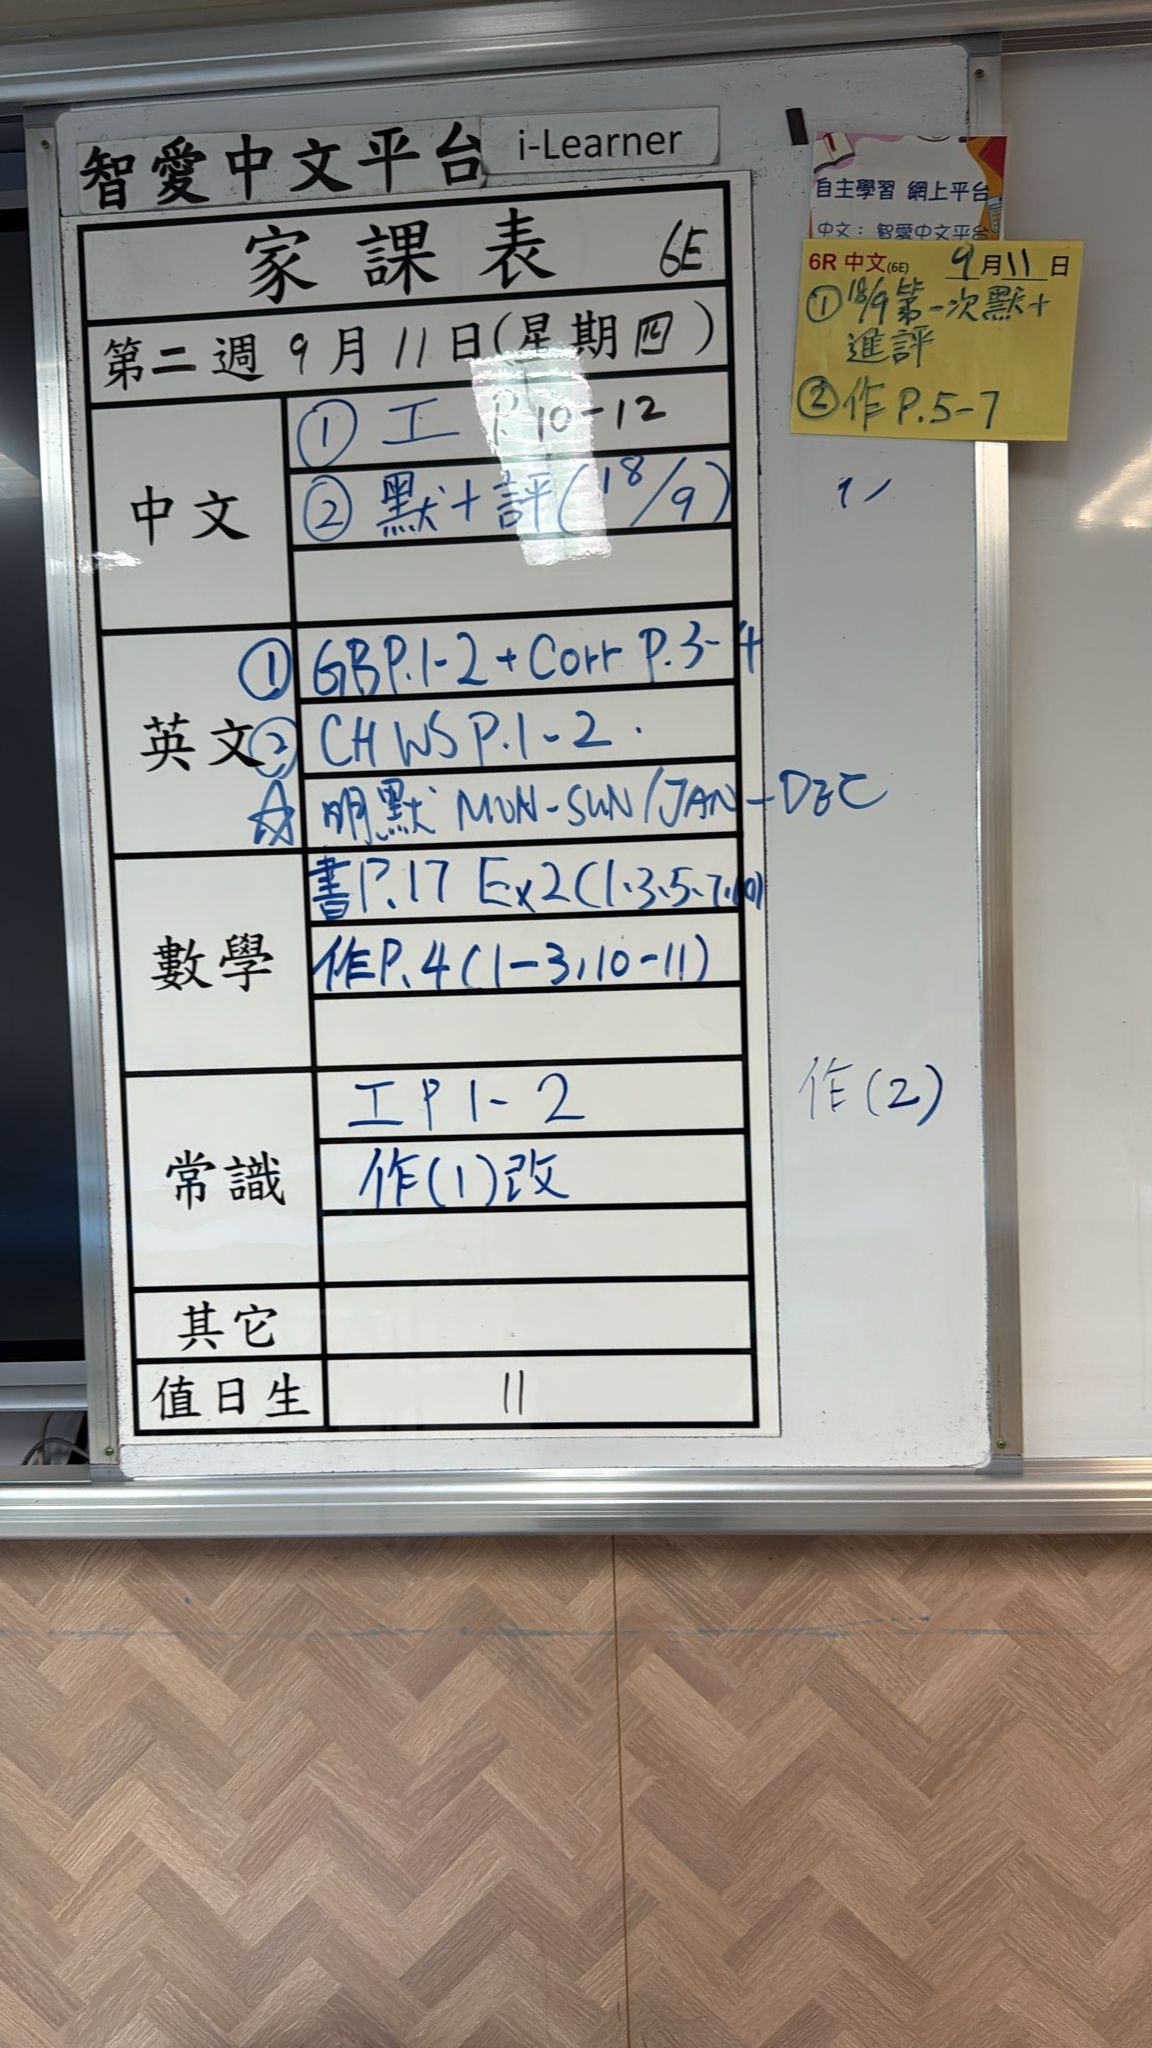 智愛中文平台 i-Learner
家課表 6E
第二週 9月11日(星期四)
中文
① 工 P.10-12
② 默+評(18/9)
英文
① GB P.1-2 + Corr P.3-4
② CH WS P.1-2.
☆ 明默 MUN-SUN/JAN-DEC
數學
書P.17 Ex2(1.3.5.7.10)
作P.4(1-3,10-11)
常識
工 P 1-2
作(1)改
作(2)
其它
值日生 11
自主學習 網上平台
中文: 智愛中文平台
6R 中文(6E) 9月11日
① 18/9 第一次默+
進評
② 作 P.5-7